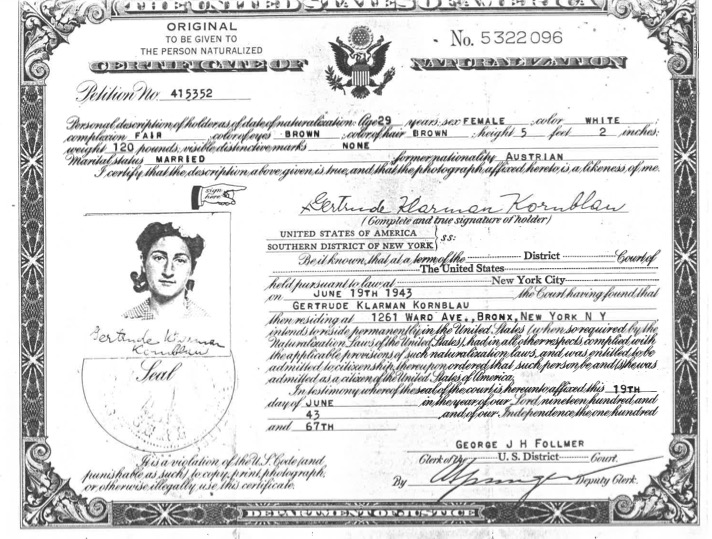 THE UNITED STATES OF AMERICA
ORIGINAL
TO BE GIVEN TO
THE PERSON NATURALIZED
No. 5322096
CERTIFICATE OF NATURALIZATION
Petition No. 415352
Personal description of holder as of date of naturalization: Age 29 years; sex FEMALE color WHITE ;
complexion FAIR color of eyes BROWN color of hair BROWN height 5 feet 2 inches;
weight 120 pounds; visible distinctive marks NONE
Marital status MARRIED former nationality AUSTRIAN
I certify that the description above given is true, and that the photograph affixed hereto is a likeness of me.
sign here
Gertrude Klarman Kornblau
(Complete and true signature of holder)
UNITED STATES OF AMERICA
SOUTHERN DISTRICT OF NEW YORK
ss:
Be it known, that at a term of the District Court of
The United States
held pursuant to law at New York City
on JUNE 19TH 1943 the Court having found that
GERTRUDE KLARMAN KORNBLAU
then residing at 1261 WARD AVE., BRONX, NEW YORK N Y
intends to reside permanently in the United States (when so required by the
Naturalization Laws of the United States), had in all other respects complied with
the applicable provisions of such naturalization laws, and was entitled to be
admitted to citizenship, thereupon ordered that such person be and (s)he was
admitted as a citizen of the United States of America.
In testimony whereof the seal of the court is hereunto affixed this 19TH
day of JUNE in the year of our Lord nineteen hundred and
43 and of our Independence the one hundred
and 67TH
Gertrude Klarman
Kornblau
Seal
It is a violation of the U.S. Code (and
punishable as such) to copy, print, photograph,
or otherwise illegally use this certificate.
GEORGE J H FOLLMER
Clerk of the U. S. District Court.
By Deputy Clerk.
DEPARTMENT OF JUSTICE